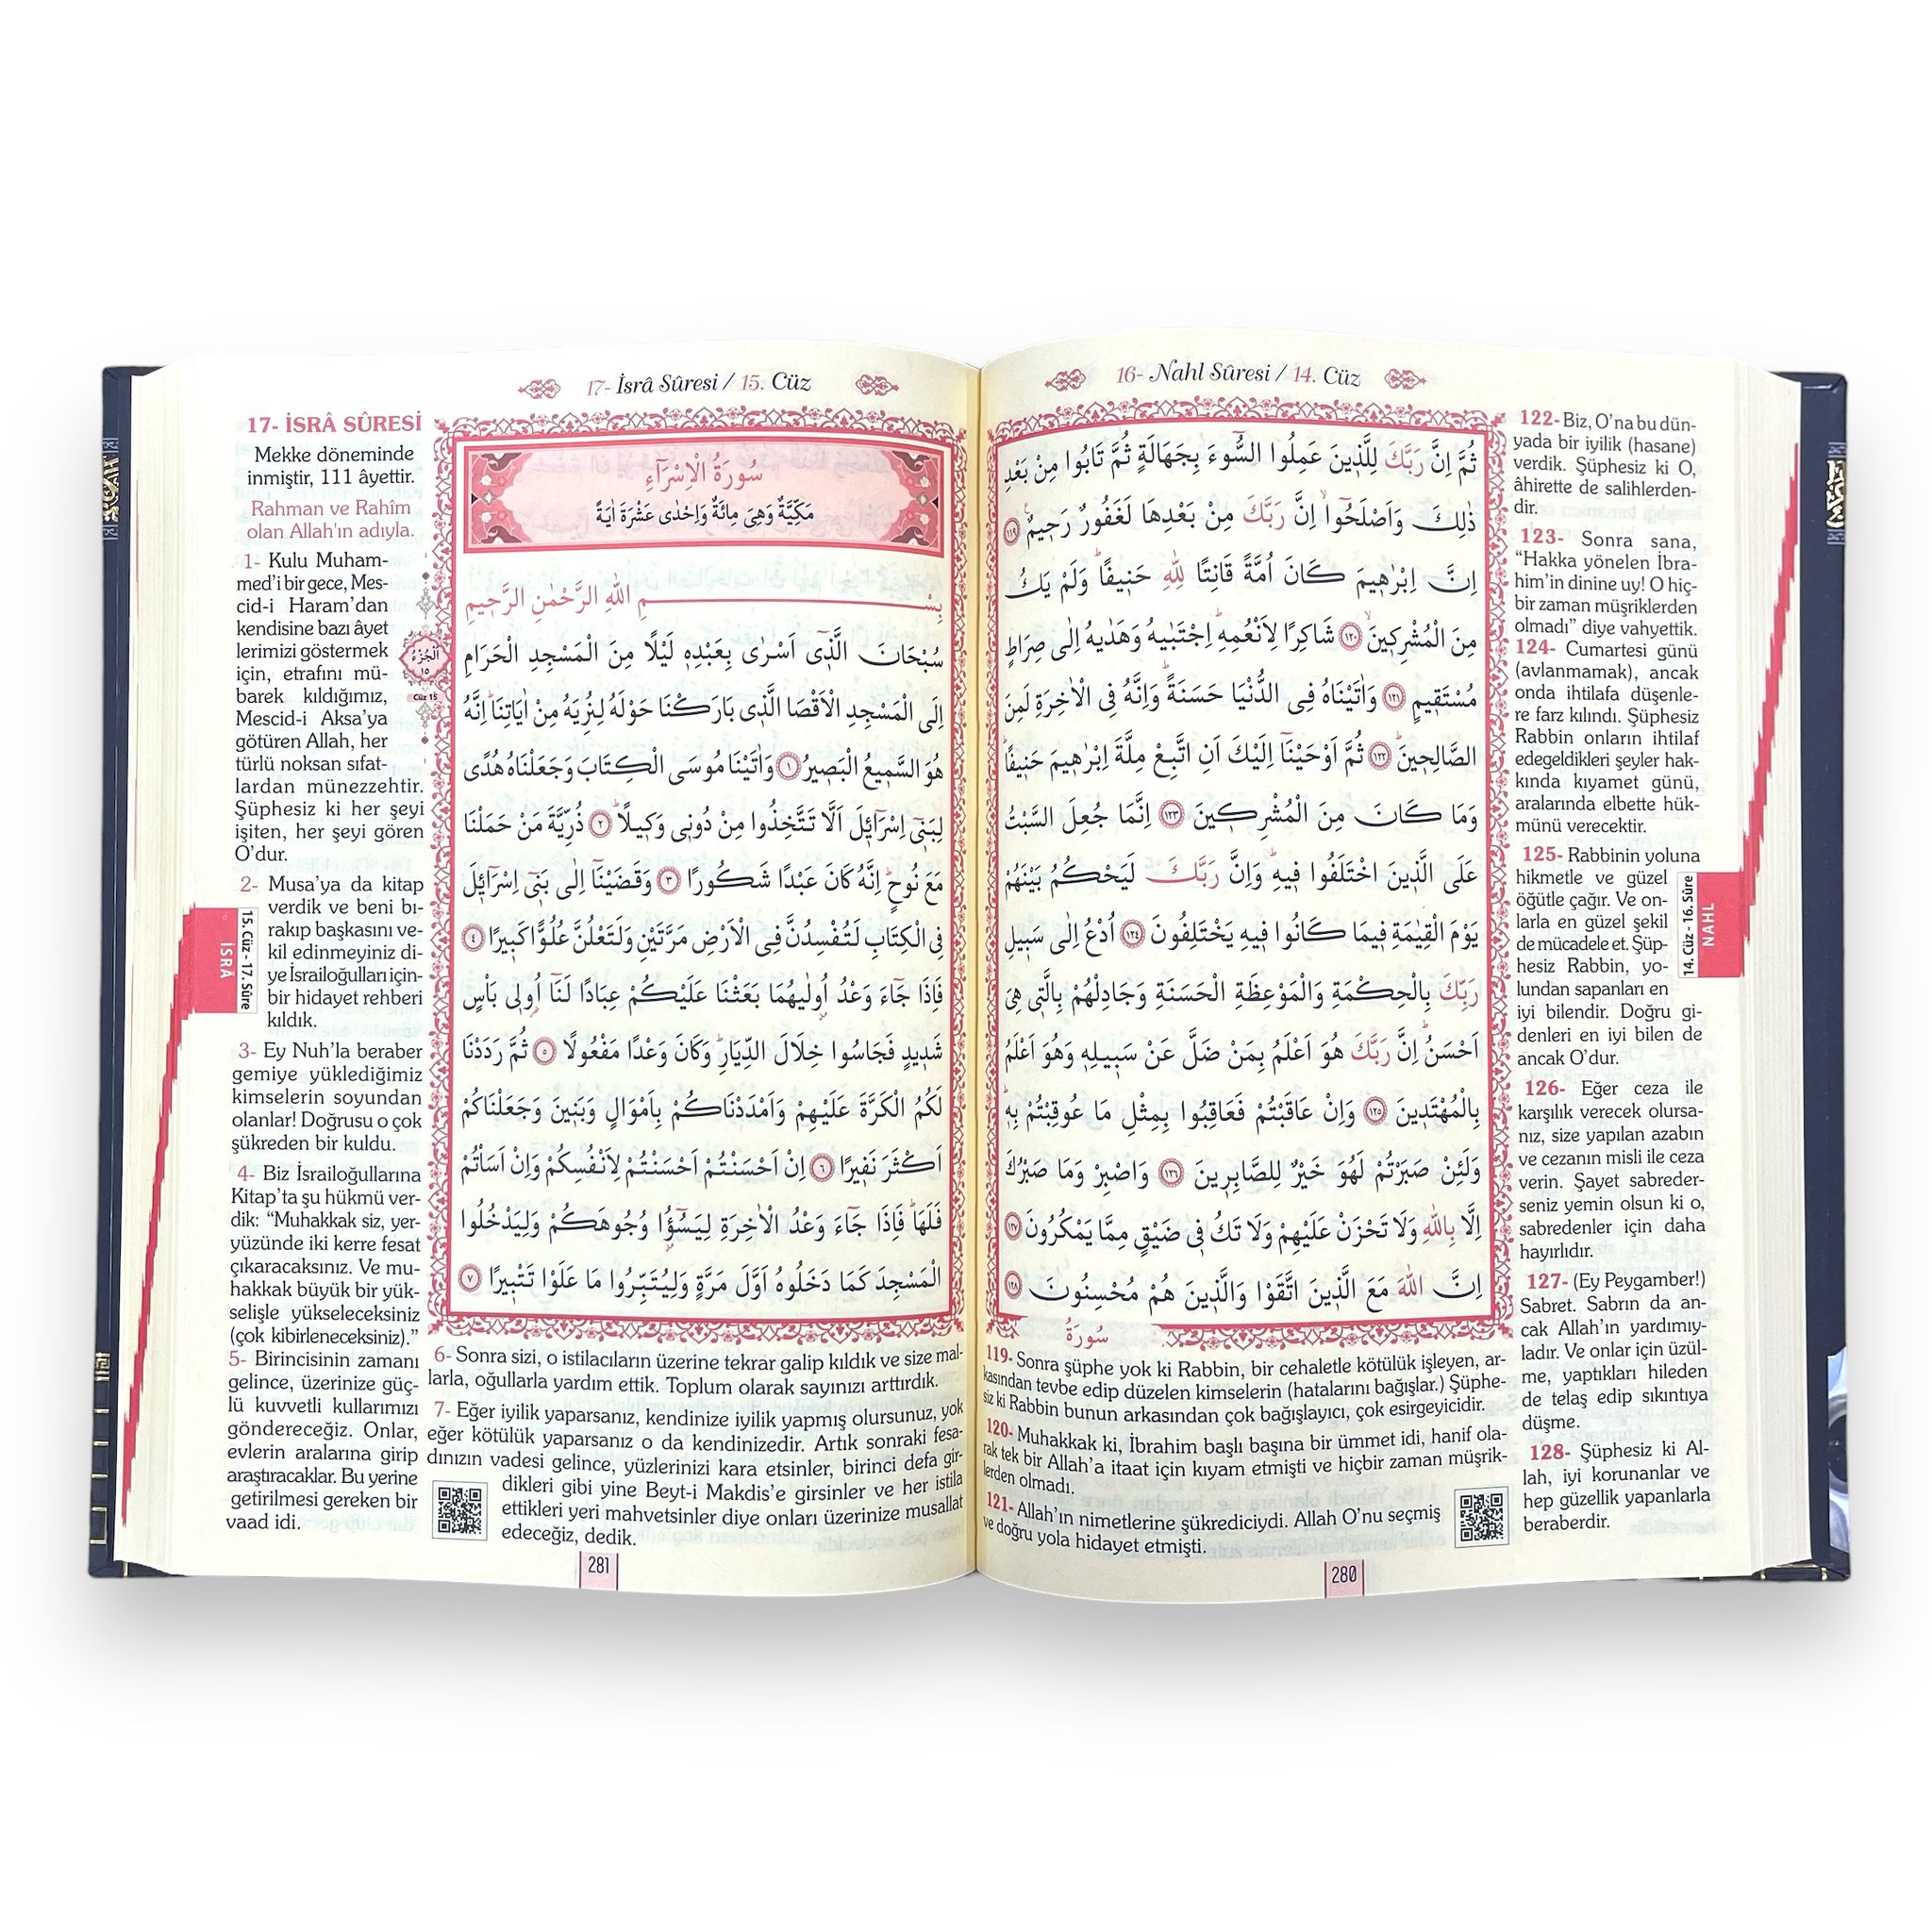 16- Nahl Sûresi / 14. Cüz
ثُمَّ اِنَّ رَبَّكَ لِلَّذ۪ينَ عَمِلُوا السُّٓوءَ بِجَهَالَةٍ ثُمَّ تَابُوا مِنْ بَعْدِ
ذٰلِكَ وَاَصْلَحُٓوا اِنَّ رَبَّكَ مِنْ بَعْدِهَا لَغَفُورٌ رَح۪يمٌ ﴿١١٩﴾
اِنَّ اِبْرٰه۪يمَ كَانَ اُمَّةً قَانِتًا لِلّٰهِ حَن۪يفًا وَلَمْ يَكُ
مِنَ الْمُشْرِك۪ينَ ﴿١٢٠﴾ شَاكِرًا لِاَنْعُمِهِ اِجْتَبٰيهُ وَهَدٰيهُ اِلٰى صِرَاطٍ
مُسْتَق۪يمٍ ﴿١٢١﴾ وَاٰتَيْنَاهُ فِى الدُّنْيَا حَسَنَةً وَاِنَّهُ فِى الْاٰخِرَةِ لَمِنَ
الصَّالِح۪ينَ ﴿١٢٢﴾ ثُمَّ اَوْحَيْنَٓا اِلَيْكَ اَنِ اتَّبِعْ مِلَّةَ اِبْرٰه۪يمَ حَن۪يفًا
وَمَا كَانَ مِنَ الْمُشْرِك۪ينَ ﴿١٢٣﴾ اِنَّمَا جُعِلَ السَّبْتُ
عَلَى الَّذ۪ينَ اخْتَلَفُوا ف۪يهِ وَاِنَّ رَبَّكَ لَيَحْكُمُ بَيْنَهُمْ
يَوْمَ الْقِيٰمَةِ ف۪يمَا كَانُوا ف۪يهِ يَخْتَلِفُونَ ﴿١٢٤﴾ اُدْعُ اِلٰى سَب۪يلِ
رَبِّكَ بِالْحِكْمَةِ وَالْمَوْعِظَةِ الْحَسَنَةِ وَجَادِلْهُمْ بِالَّت۪ى هِىَ
اَحْسَنُ اِنَّ رَبَّكَ هُوَ اَعْلَمُ بِمَنْ ضَلَّ عَنْ سَب۪يلِه۪ وَهُوَ اَعْلَمُ
بِالْمُهْتَد۪ينَ ﴿١٢٥﴾ وَاِنْ عَاقَبْتُمْ فَعَاقِبُوا بِمِثْلِ مَا عُوقِبْتُمْ بِه۪
وَلَئِنْ صَبَرْتُمْ لَهُوَ خَيْرٌ لِلصَّابِر۪ينَ ﴿١٢٦﴾ وَاصْبِرْ وَمَا صَبْرُكَ
اِلَّا بِاللّٰهِ وَلَا تَحْزَنْ عَلَيْهِمْ وَلَا تَكُ ف۪ى ضَيْقٍ مِمَّا يَمْكُرُونَ ﴿١٢٧﴾
اِنَّ اللّٰهَ مَعَ الَّذ۪ينَ اتَّقَوْا وَالَّذ۪ينَ هُمْ مُحْسِنُونَ ﴿١٢٨﴾
سُورَةُ
119- Sonra şüphe yok ki Rabbin, bir cehaletle kötülük işleyen, ar-
kasından tevbe edip düzelen kimselerin (hatalarını bağışlar.) Şüphe-
siz ki Rabbin bunun arkasından çok bağışlayıcı, çok esirgeyicidir.
120- Muhakkak ki, İbrahim başlı başına bir ümmet idi, hanif ola-
rak tek bir Allah'a itaat için kıyam etmişti ve hiçbir zaman müşrik-
lerden olmadı.
121- Allah'ın nimetlerine şükrediciydi. Allah O'nu seçmiş
ve doğru yola hidayet etmişti.
122- Biz, O'na bu dün-
yada bir iyilik (hasane)
verdik. Şüphesiz ki O,
âhirette de salihlerden-
dir.
123- Sonra sana,
“Hakka yönelen İbra-
him'in dinine uy! O hiç-
bir zaman müşriklerden
olmadı” diye vahyettik.
124- Cumartesi günü
(avlanmamak), ancak
onda ihtilafa düşenle-
re farz kılındı. Şüphesiz
Rabbin onların ihtilaf
edegeldikleri şeyler hak-
kında kıyamet günü,
aralarında elbette hük-
münü verecektir.
125- Rabbinin yoluna
hikmetle ve güzel
öğütle çağır. Ve on-
larla en güzel şekil
de mücadele et. Şüp-
hesiz Rabbin, yo-
lundan sapanları en
iyi bilendir. Doğru gi-
denleri en iyi bilen de
ancak O'dur.
126- Eğer ceza ile
karşılık verecek olursa-
nız, size yapılan azabın
ve cezanın misli ile ceza
verin. Şayet sabreder-
seniz yemin olsun ki o,
sabredenler için daha
hayırlıdır.
127- (Ey Peygamber!)
Sabret. Sabrın da an-
cak Allah'ın yardımıy-
ladır. Ve onlar için üzül-
me, yaptıkları hileden
de telaş edip sıkıntıya
düşme.
128- Şüphesiz ki Al-
lah, iyi korunanlar ve
hep güzellik yapanlarla
beraberdir.
14. Cüz - 16. Sûre
NAHL
280
17- İsrâ Sûresi / 15. Cüz
سُورَةُ الْاِسْرَٓاءِ
مَكِّيَّةٌ وَهِىَ مِائَةٌ وَاِحْدٰى عَشْرَةَ اٰيَةً
بِسْمِ اللّٰهِ الرَّحْمٰنِ الرَّح۪يمِ
سُبْحَانَ الَّذ۪ٓى اَسْرٰى بِعَبْدِه۪ لَيْلًا مِنَ الْمَسْجِدِ الْحَرَامِ
اِلَى الْمَسْجِدِ الْاَقْصَا الَّذ۪ى بَارَكْنَا حَوْلَهُ لِنُرِيَهُ مِنْ اٰيَاتِنَا اِنَّهُ
هُوَ السَّم۪يعُ الْبَص۪يرُ ﴿١﴾ وَاٰتَيْنَا مُوسَى الْكِتَابَ وَجَعَلْنَاهُ هُدًى
لِبَن۪ٓى اِسْرَٓائ۪لَ اَلَّا تَتَّخِذُوا مِنْ دُون۪ى وَك۪يلًا ﴿٢﴾ ذُرِّيَّةَ مَنْ حَمَلْنَا
مَعَ نُوحٍ اِنَّهُ كَانَ عَبْدًا شَكُورًا ﴿٣﴾ وَقَضَيْنَٓا اِلٰى بَن۪ٓى اِسْرَٓائ۪لَ
فِى الْكِتَابِ لَتُفْسِدُنَّ فِى الْاَرْضِ مَرَّتَيْنِ وَلَتَعْلُنَّ عُلُوًّا كَب۪يرًا ﴿٤﴾
فَاِذَا جَٓاءَ وَعْدُ اُو۫لٰيهُمَا بَعَثْنَا عَلَيْكُمْ عِبَادًا لَنَٓا اُو۬ل۪ى بَاْسٍ
شَد۪يدٍ فَجَاسُوا خِلَالَ الدِّيَارِ وَكَانَ وَعْدًا مَفْعُولًا ﴿٥﴾ ثُمَّ رَدَدْنَا
لَكُمُ الْكَرَّةَ عَلَيْهِمْ وَاَمْدَدْنَاكُمْ بِاَمْوَالٍ وَبَن۪ينَ وَجَعَلْنَاكُمْ
اَكْثَرَ نَف۪يرًا ﴿٦﴾ اِنْ اَحْسَنْتُمْ اَحْسَنْتُمْ لِاَنْفُسِكُمْ وَاِنْ اَسَاْتُمْ
فَلَهَا فَاِذَا جَٓاءَ وَعْدُ الْاٰخِرَةِ لِيَسُٓؤُ۫ا وُجُوهَكُمْ وَلِيَدْخُلُوا
الْمَسْجِدَ كَمَا دَخَلُوهُ اَوَّلَ مَرَّةٍ وَلِيُتَبِّرُوا مَا عَلَوْا تَتْب۪يرًا ﴿٧﴾
اَلْجُزْءُ
١٥
Cüz 15
17- İSRÂ SÛRESİ
Mekke döneminde
inmiştir, 111 âyettir.
Rahman ve Rahîm
olan Allah'ın adıyla.
1- Kulu Muham-
med'i bir gece, Mes-
cid-i Haram'dan
kendisine bazı âyet
lerimizi göstermek
için, etrafını mü-
barek kıldığımız,
Mescid-i Aksa'ya
götüren Allah, her
türlü noksan sıfat-
lardan münezzehtir.
Şüphesiz ki her şeyi
işiten, her şeyi gören
O'dur.
2- Musa'ya da kitap
verdik ve beni bı-
rakıp başkasını ve-
kil edinmeyiniz di-
ye İsrailoğulları için-
bir hidayet rehberi
kıldık.
3- Ey Nuh'la beraber
gemiye yüklediğimiz
kimselerin soyundan
olanlar! Doğrusu o çok
şükreden bir kuldu.
4- Biz İsrailoğullarına
Kitap'ta şu hükmü ver-
dik: “Muhakkak siz, yer-
yüzünde iki kerre fesat
çıkaracaksınız. Ve mu-
hakkak büyük bir yük-
selişle yükseleceksiniz
(çok kibirleneceksiniz).”
5- Birincisinin zamanı
gelince, üzerinize güç-
lü kuvvetli kullarımızı
göndereceğiz. Onlar,
evlerin aralarına girip
araştıracaklar. Bu yerine
getirilmesi gereken bir
vaad idi.
6- Sonra sizi, o istilacıların üzerine tekrar galip kıldık ve size mal-
larla, oğullarla yardım ettik. Toplum olarak sayınızı arttırdık.
7- Eğer iyilik yaparsanız, kendinize iyilik yapmış olursunuz, yok
eğer kötülük yaparsanız o da kendinizedir. Artık sonraki fesa-
dınızın vadesi gelince, yüzlerinizi kara etsinler, birinci defa gir-
dikleri gibi yine Beyt-i Makdis'e girsinler ve her istila
ettikleri yeri mahvetsinler diye onları üzerinize musallat
edeceğiz, dedik.
15. Cüz - 17. Sûre
İSRÂ
281